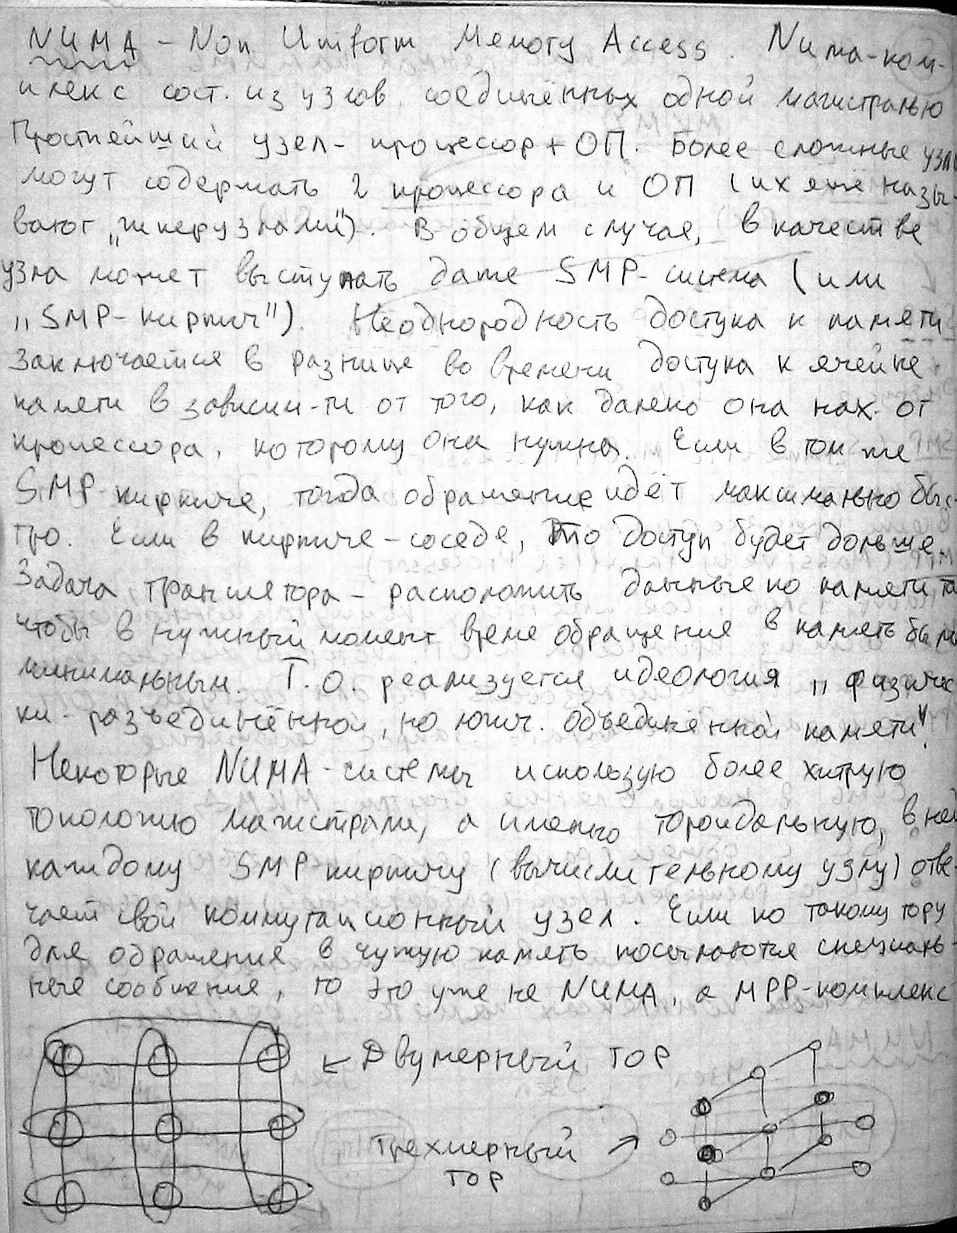 NUMA - Non Uniform Memory Access. Numa-ком-
плекс сост. из узлов, соединённых одной магистралью
Простейший узел - процессор + ОП. Более сложные узлы
могут содержать 2 процессора и ОП (их ещё назы-
вают „гиперузлами"). В общем случае, в качестве
узла может выступать даже SMP-система (или
„SMP-кирпич"). Неоднородность доступа к памяти
заключается в разнице во времени доступа к ячейке
памяти в зависим-ти от того, как далеко она нах. от
процессора, которому она нужна. Если в том же
SMP-кирпиче, тогда обращение идёт максимально быс-
тро. Если в кирпиче-соседе, то доступ будет дольше.
Задача транслятора - расположить данные по памяти та
чтобы в нужный момент время обращения в память было
минимальным. Т.о. реализуется идеология „физичес
ки-разъединённой, но логич. объединённой памяти".
Некоторые NUMA-системы использую более хитрую
топологию магистрали, а именно тороидальную, в ней
каждому SMP кирпичу (вычислительному узлу) отве-
чает свой коммутационный узел. Если по такому тору
для обращения в чужую память посылаются специаль-
ные сообщения, то это уже не NUMA, а MPP-комплекс
Двумерный тор
Трехмерный
тор